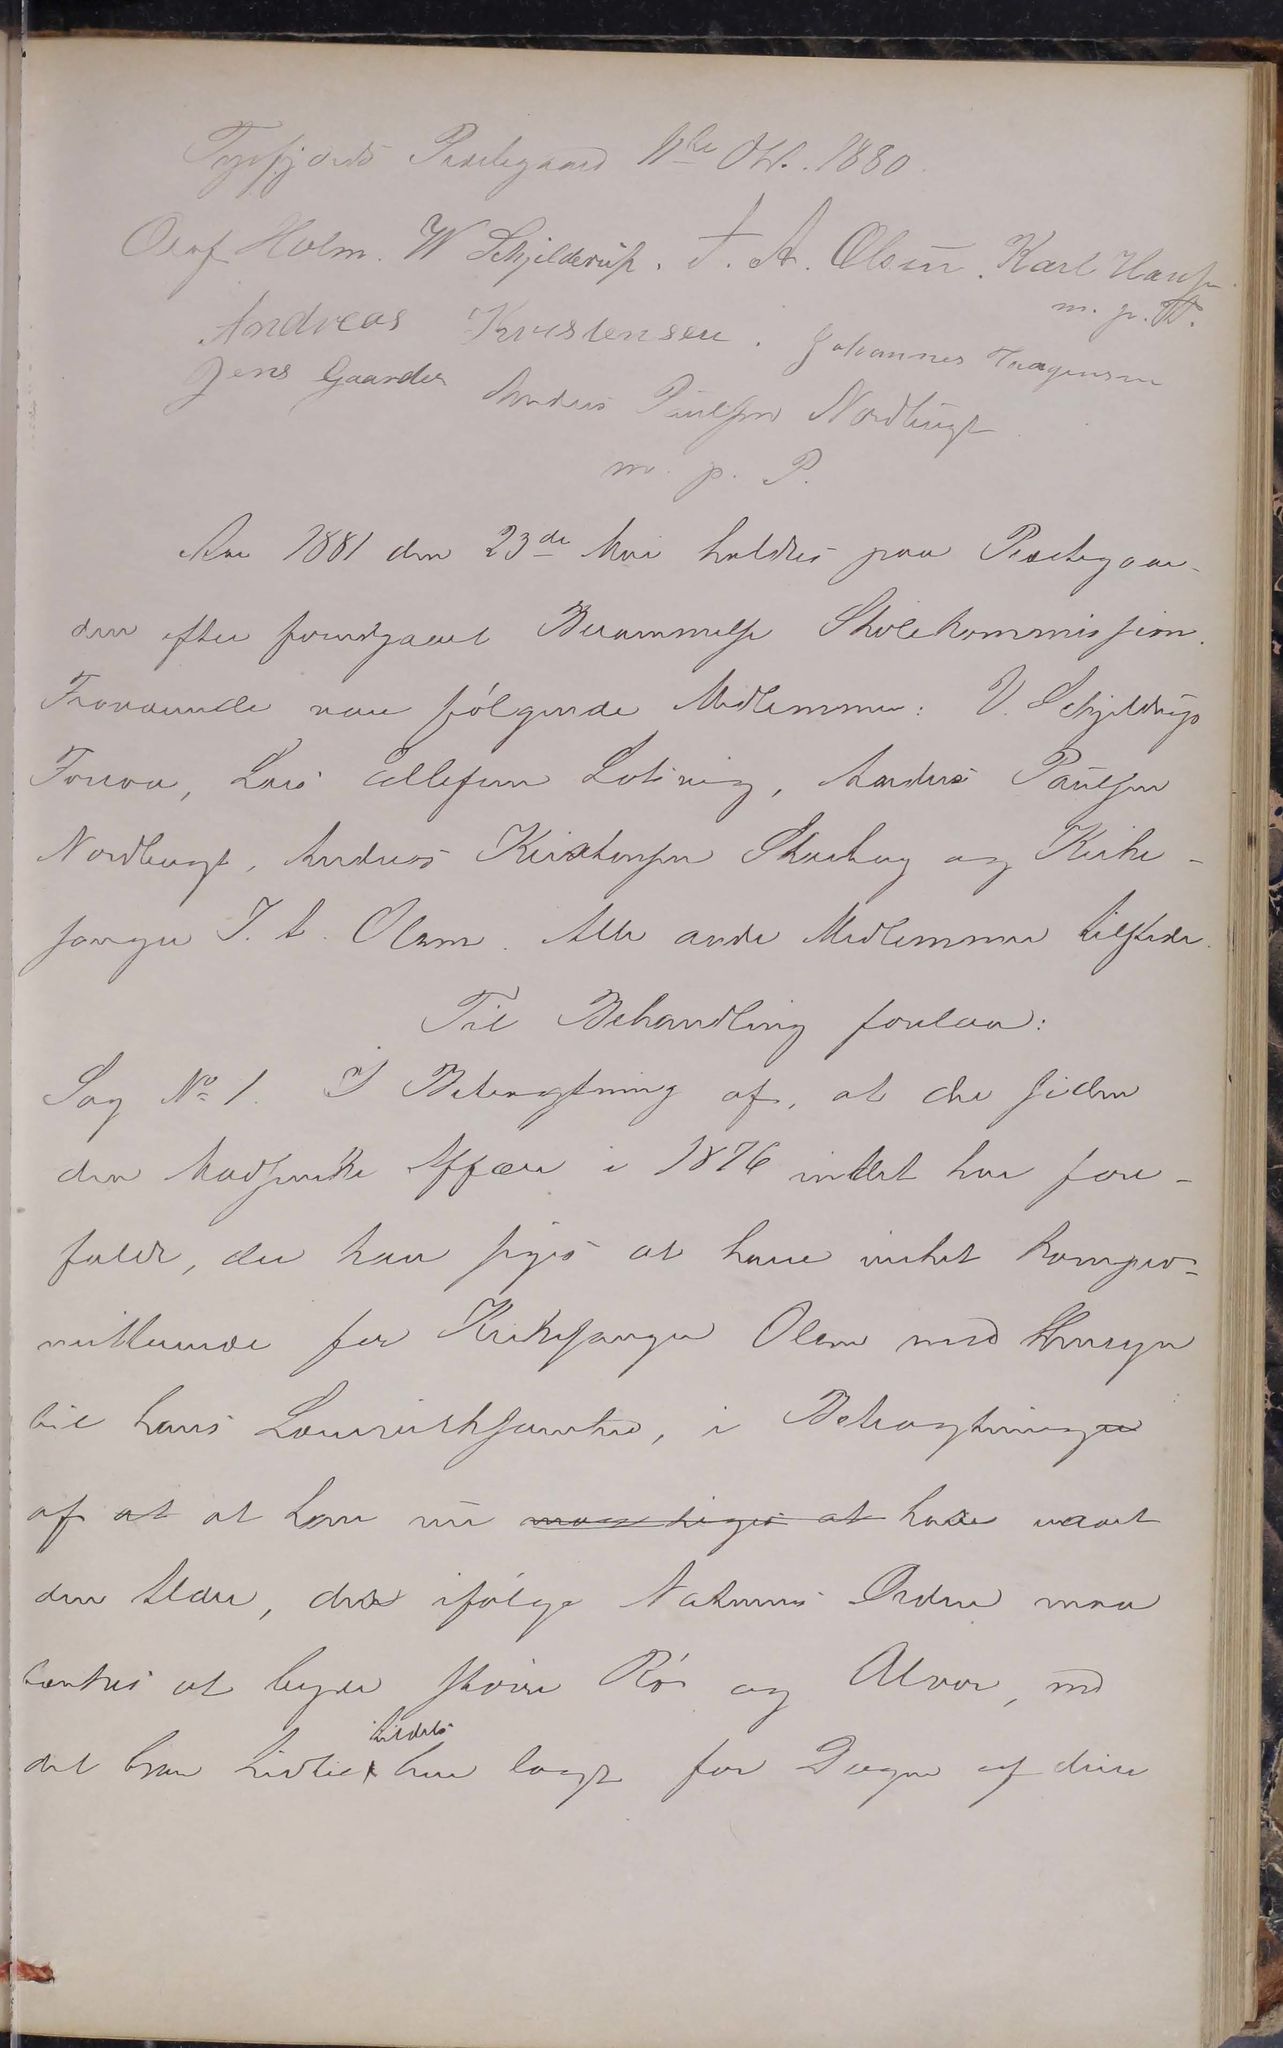 Tysfjords Præstegaard 11te Okt. 1880.
Oluf Holm. W Schjelderup. J. A. Olsen. Karl Hansen
m. p. P.
Andreas Kristensen. Johannes Aagensen
Jens Gaarder Anders Paulsen Nordbugt
m. p. P.
Aar 1881 den 23de Mai holdtes paa Præstegaar-
den efter foregaaet Berammelse Skolekommission.
Fraværende vare følgende Medlemmer: V. Schjelderup
Korsnes, Lars Ellefsen Lotsvig, Anders Paulsen
Nordbugt, Andreas Kristensen Skarberg og Kirke-
sanger J. A. Olsen. Alle andre Medlemmer tilstede.
Til Behandling forelaa:
Sag No 1. I Betragtning af, at der siden
den Madsenske Affære i 1876 intet har fore-
faldt, der kan siges at have virket kompro-
mitterende for Kirkesanger Olsen med Hensyn
til hans Lærervirksomhed, i Betragtning
af at at han nu maa siges at have naaet
den Alder, der ifølge Naturens Orden maa
ventes at byde større Ro og Alvor, med
det han hidtil tildels har lagt for Dagen af disse